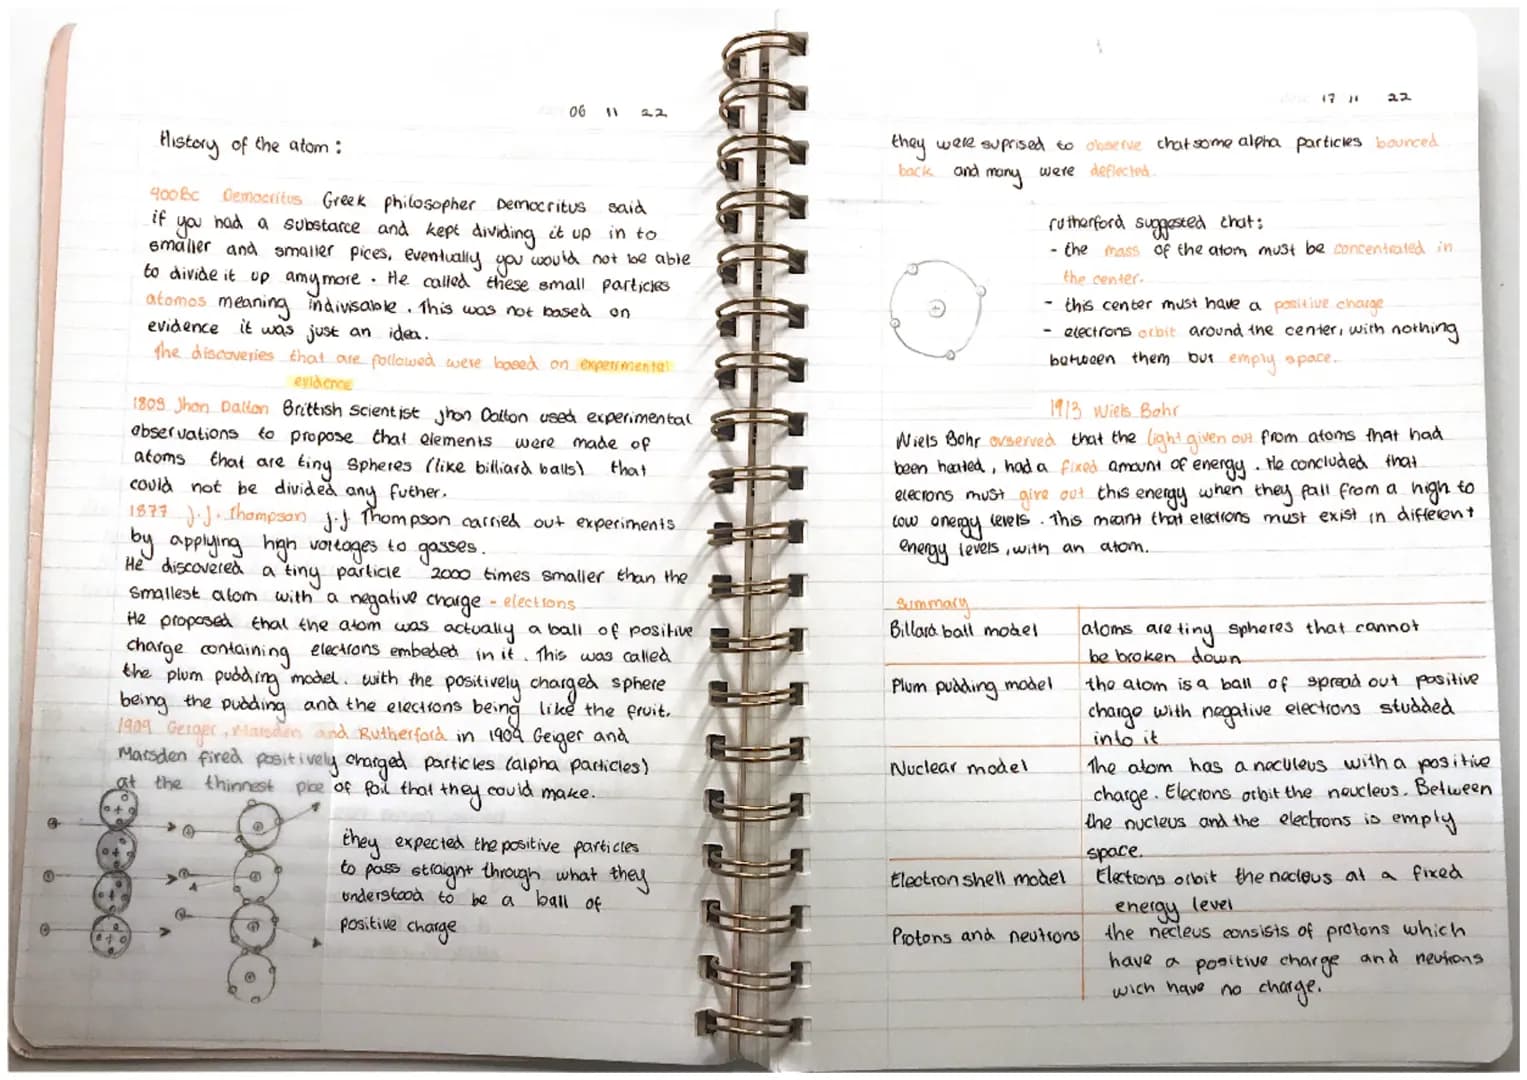 06 11 22
History of the atom:
400BC Democritus Greek philosopher Democritus said
if you had a substarce and kept dividing it up in to
smaller and smaller pices, eventually you would not be able
to divide it up amymore. He called these small particles
atomos meaning indivisable. This was not based on
evidence it was just an idea.
the discoveries that are followed were based on experimental
evidence
1803 Jhon Dalton Brittish scientist jhon Dalton used experimental
observations to propose that elements were made of
atoms that are tiny spheres (like billiard balls) that
could not be divided any futher.
1877 J.J. Thompson J.J Thompson carried out experiments
by applying high voltages to gasses.
He discovered a tiny particle 2000 times smaller than the
smallest atom with a negative charge - electrons
He proposed that the atom was actually a ball of positive
charge containing electrons embeded in it. This was called
the plum pudding model. with the positively charged sphere
being the pudding and the electrons being like the fruit.
1909 Geiger, Marsden and Rutherford in 1909 Geiger and
Marsden fired positively charged particles (alpha particles)
at the thinnest pice of foil that they could make.
they expected the positive particles
to pass straight through what they
understood to be a ball of
positive charge
17 11 22
they were suprised to observe that some alpha particles bounced
back and many were deflected.
rutherford suggested that:
- the mass of the atom must be concentrated in
the center.
- this center must have a positive charge
- electrons orbit around the center, with nothing
between them but empty space.
1913 Niels Bohr
Niels Bohr ovserved that the light given out from atoms that had
been heated, had a fixed amount of energy. He concluded that
elecrons must give out this energy when they fall from a high to
low energy levels. This meant that electrons must exist in different
energy levels, with an atom.
summary
Billard ball model atoms are tiny spheres that cannot
be broken down
Plum pudding model the atom is a ball of spread out positive
charge with negative electrons studded
into it
Nuclear model The atom has a neculeus with a positive
charge. Elecrons orbit the neucleus. Between
the nucleus and the electrons is empty
space.
Electron shell model Elections orbit the necleus at a fixed
energy level
Protons and neutrons the necleus consists of protons which
have a positive charge and neutrons
wich have no charge.